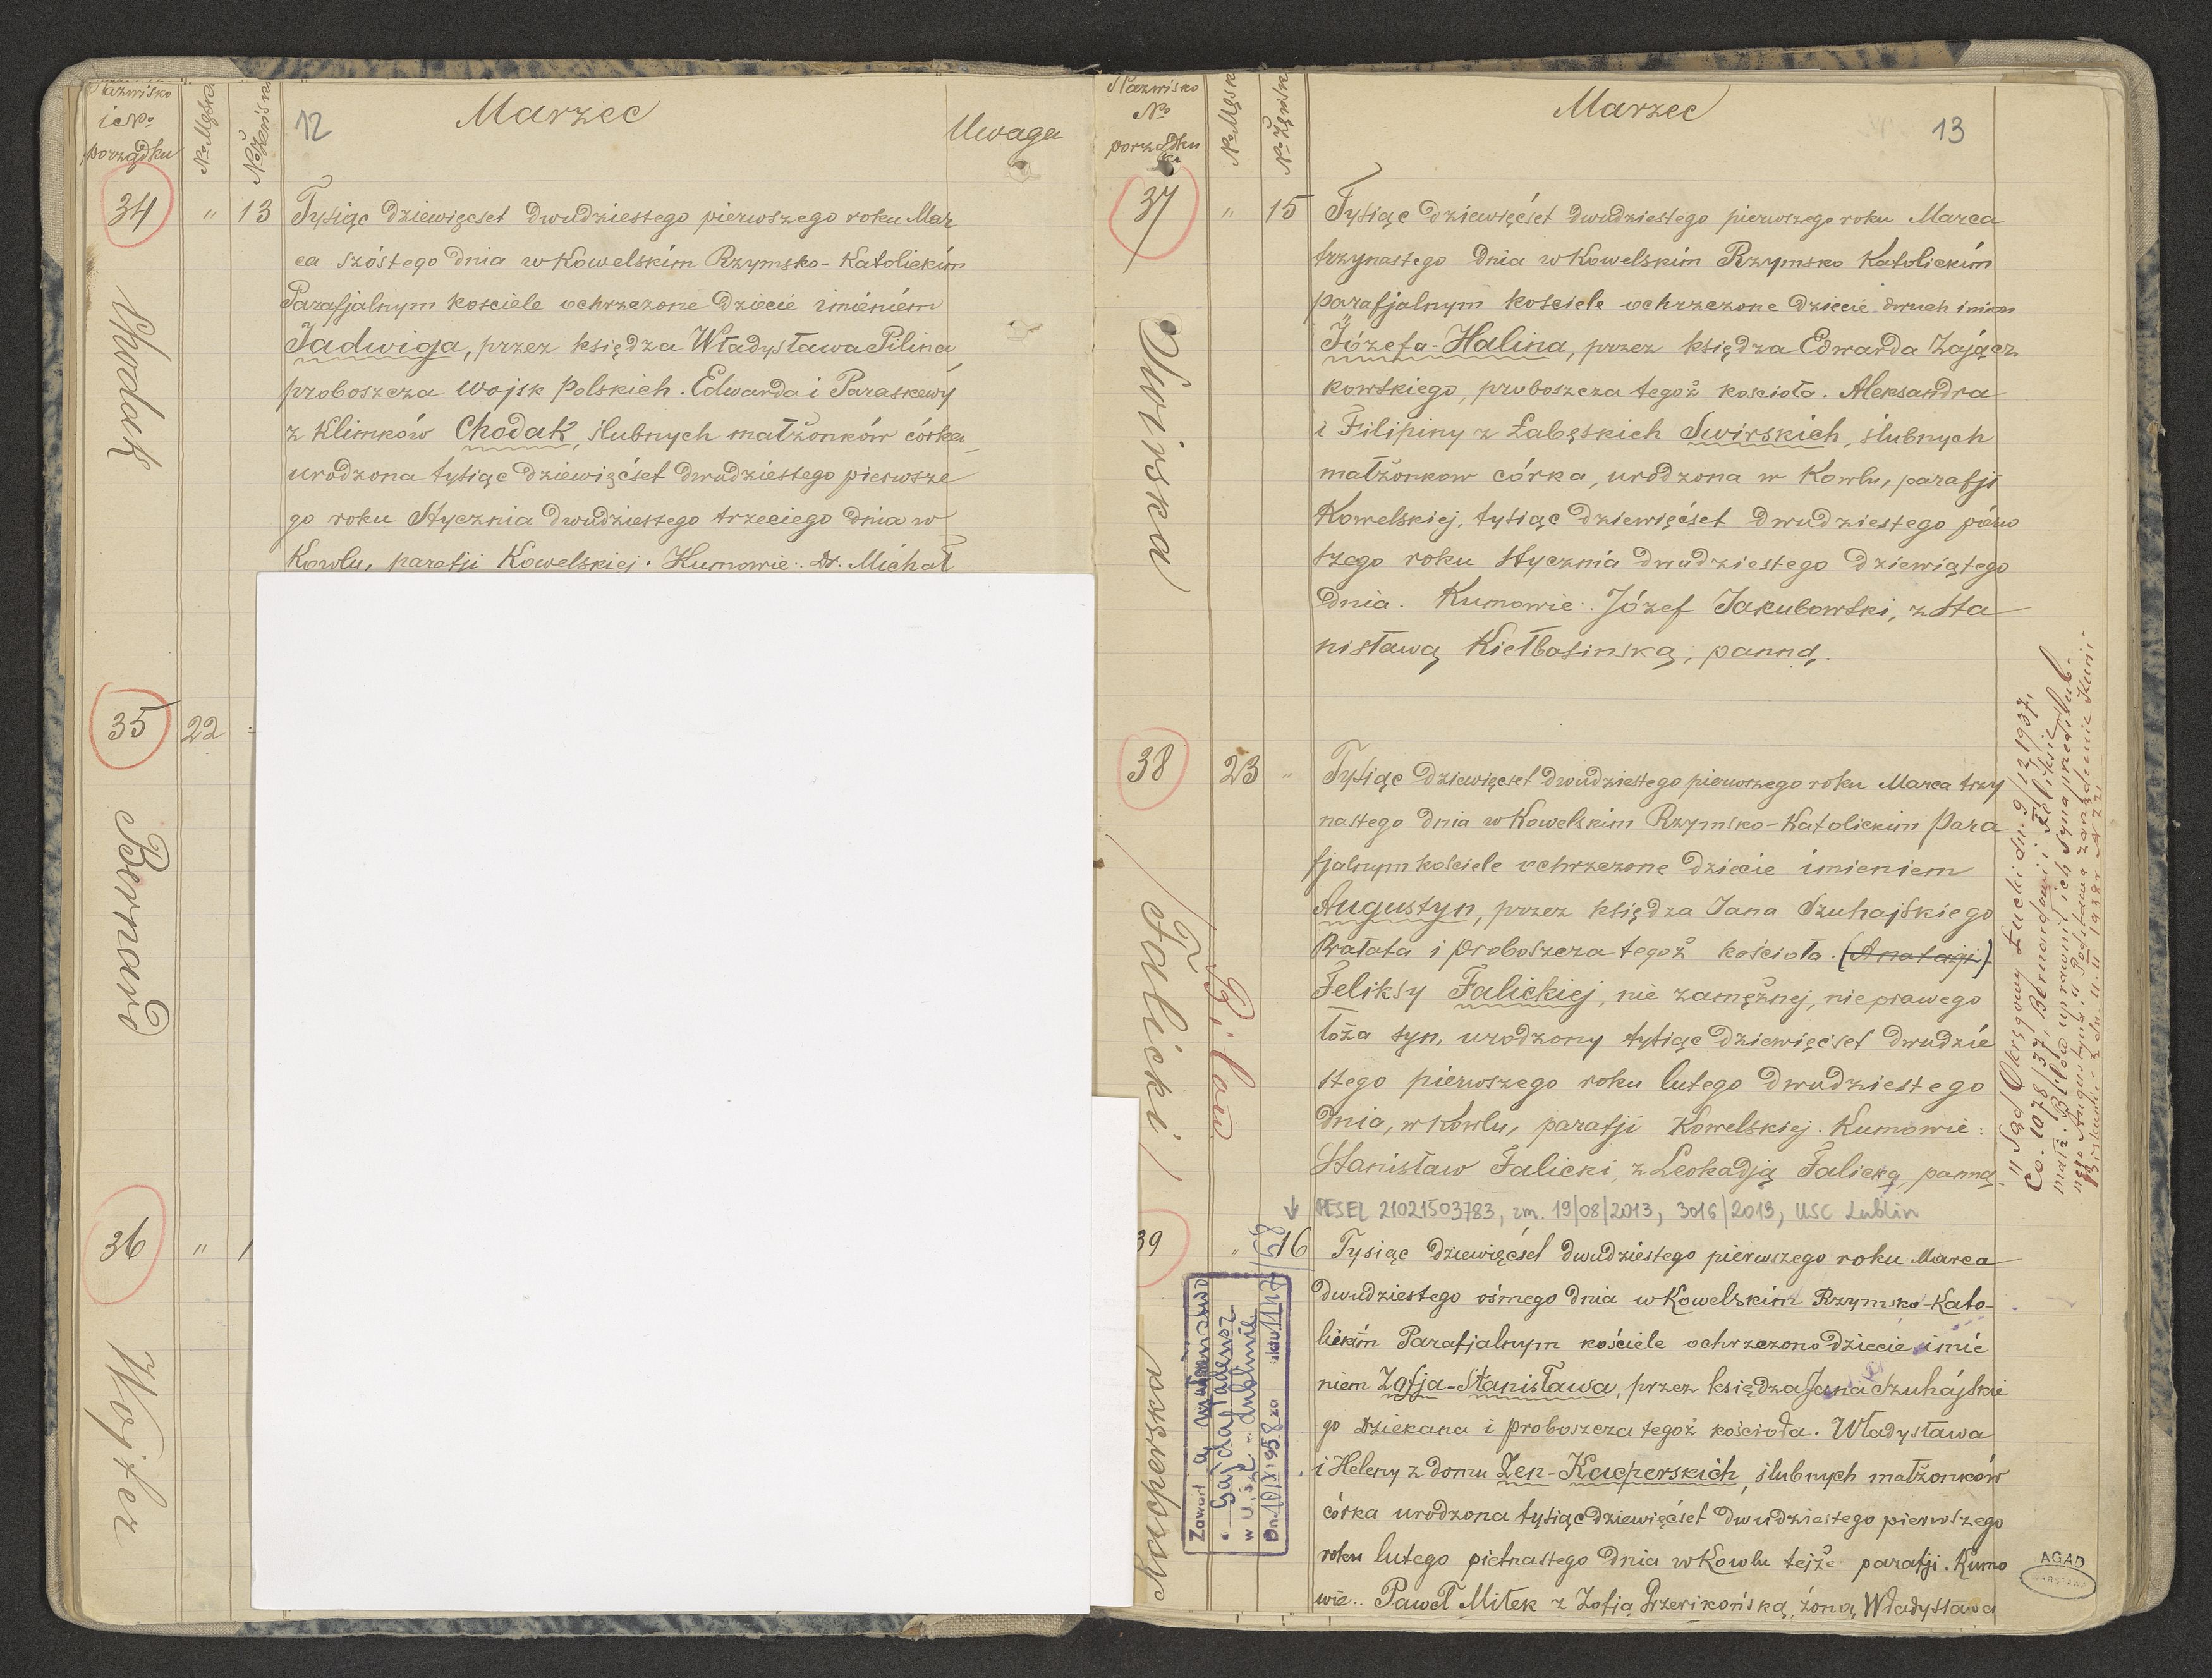 Nazwisko
i No
porządku
No Męski
No Żeński
12
Marzec
Uwaga
34
"
13
Chodak
Tysiąc dziewięćset dwudziestego pierwszego roku Mar
ca szóstego dnia w Kowelskim Rzymsko-Katolickim
Parafjalnym kosciele ochrzczone dziecie imieniem
Jadwiga, przez księdza Władysława Pilina
proboszcza Wojsk Polskich. Edwarda i Paraskewy
z Klimków Chodak, ślubnych małżonków córka
urodzona tysiąc dziewięćset dwudziestego pierwsze
go roku Stycznia dwudziestego trzeciego dnia w
Kowlu, parafji Kowelskiej. Kumowie: Dr. Michał
35
22
Bernard
36
"
1
Wojter
Nazwisko
No
porządku
No Męski
No Żeński
Marzec
13
37
"
15
Swirska
Tysiąc dziewięćset dwudziestego pierwszego roku Marca
trzynastego dnia w Kowelskim Rzymsko Katolickim
parafjalnym kosciele ochrzczone dziecie dwuch imion
Józefa-Halina, przez księdza Edwarda Zającz
kowskiego, proboszcza tegoż koscioła. Aleksandra
i Filipiny z Łabęskich Swirskich, ślubnych
małżonkow córka, urodzona w Kowlu, parafji
Kowelskiej, tysiąc dziewięćset dwudziestego pierw
szego roku Stycznia dwudziestego dziewiątego
dnia. Kumowie: Józef Jakubowski, z Sta
nisławą Kiełbasinską, panną.
38
23
"
(Falicki)
Biłow
Tysiąc dziewięćset dwudziestego pierwszego roku Marca trzy
nastego dnia w Kowelskim Rzymsko-Katolickim Para
fjalnym kościele ochrzczone dziecie imieniem
Augustyn, przez księdza Jana Szuhajskiego
Prałata i Proboszcza tegoż kościoła. (Anatazji)
Feliksy Falickiej, nie zamężnej, nieprawego
łoża syn, urodzony tysiąc dziewięćset dwudzie
stego pierwszego roku lutego dwudziestego
dnia, w Kowlu, parafji Kowelskiej. Kumowie:
Stanisław Falicki, z Leokadją Falicką, panną.
"Sąd Okręgowy Łucki dn. 9/12 1937,
Co. 1078/37, Bernardowi i Feliksie
małż. Biłow uprawnił ich syna przedślub-
nego Augustyna". Podstawa zarządzenie Kurji
Biskupiej z dn. 11.II 1938 r. N 721
↓ PESEL 21021503783, zm. 19/08/2013, 3016/2013, USC Lublin
39
"
16
Kacperska
Zawarł a małżeństwo
w U.S.C. - Lublinie
Dn. 10/IX 1958 za aktu 1117/58
Tysiąc dziewięćset dwudziestego pierwszego roku Marca
dwudziestego ośmego dnia w Kowelskim Rzymsko-Kato-
lickim Parafjalnym kościele ochrzczono dziecie imie
niem Zofja-Stanisława, przez księdza Jana Szuhajskie
go Dziekana i proboszcza tegoż kościoła. Władysława
i Heleny z domu Zen-Kacperskich, ślubnych małżonków
córka urodzona tysiąc dziewięćset dwudziestego pierwszego
roku lutego pietnastego dnia w Kowlu tejże parafji. Kumo
wie.. Paweł Miłek z Zofją Grzerikońską, żoną Władysława
AGAD